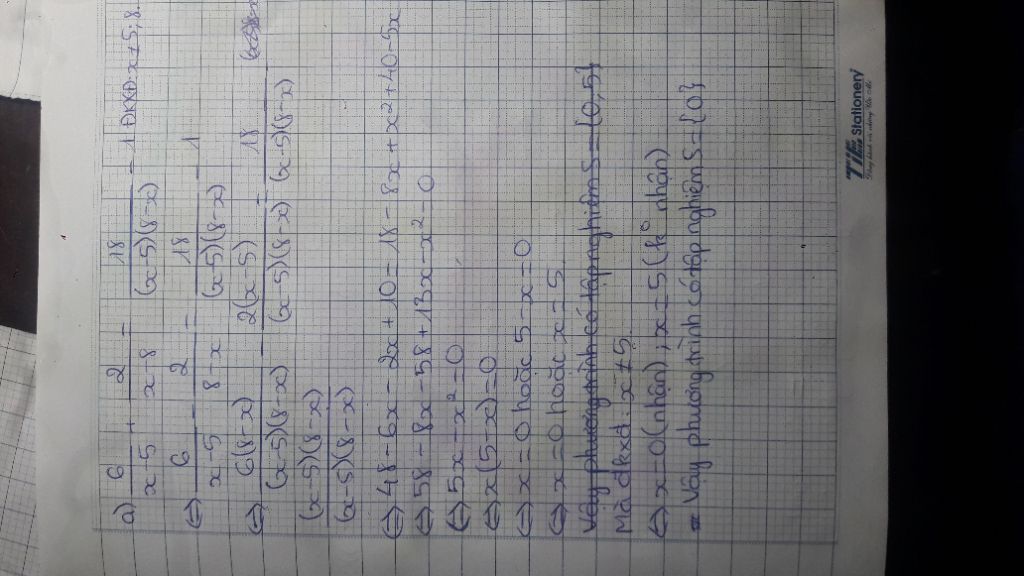 a) 6/(x-5) + 2/(x-8) = 18/((x-5)(8-x)) - 1 ĐKXĐ: x ≠ 5; 8
⇔ 6/(x-5) - 2/(8-x) = 18/((x-5)(8-x)) - 1
⇔ 6(8-x)/((x-5)(8-x)) - 2(x-5)/((x-5)(8-x)) = 18/((x-5)(8-x)) -
(x-5)(8-x)/((x-5)(8-x))
⇔ 48 - 6x - 2x + 10 = 18 - 8x + x² + 40 - 5x
⇔ 58 - 8x - 58 + 13x - x² = 0
⇔ 5x - x² = 0
⇔ x(5-x) = 0
⇔ x = 0 hoặc 5 - x = 0
⇔ x = 0 hoặc x = 5
Vậy phương trình có tập nghiệm S = {0, 5}
Mà đkxđ: x ≠ 5
⇔ x = 0 (nhận); x = 5 (k° nhận)
Vậy phương trình có tập nghiệm S = {0}
TIE Stationery